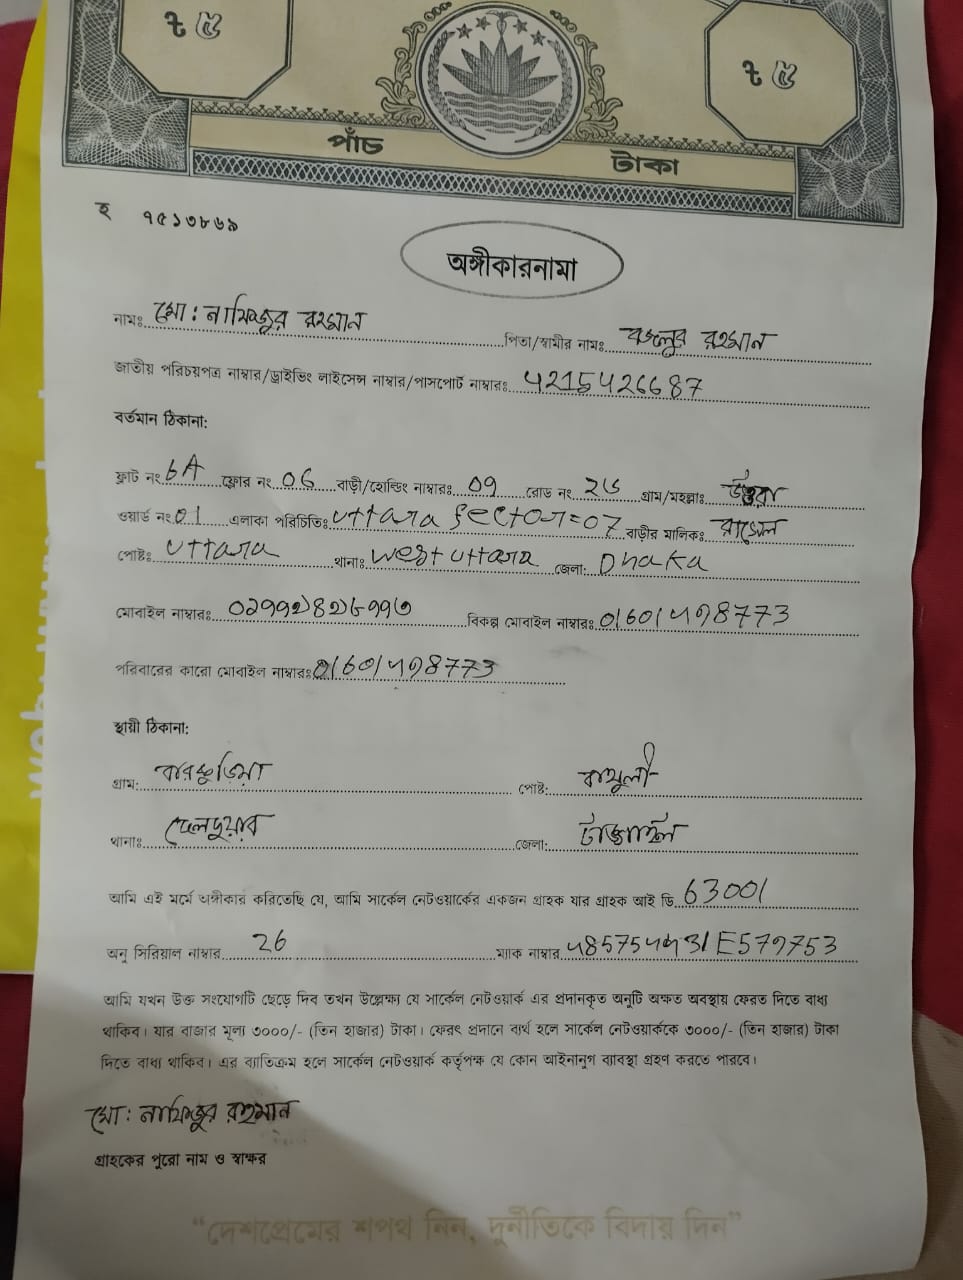 ৳ ৫ ৳ ৫
পাঁচ টাকা
হ ৭৫১৩৮৬৯
অঙ্গীকারনামা
নামঃ মো: নাফিজুর রহমান পিতা/স্বামীর নামঃ বজলুর রহমান
জাতীয় পরিচয়পত্র নাম্বার/ড্রাইভিং লাইসেন্স নাম্বার/পাসপোর্ট নাম্বারঃ 4215426687
বর্তমান ঠিকানা:
ফ্লাট নং 6A ফ্লোর নং 06 বাড়ী/হোল্ডিং নাম্বারঃ 09 রোড নং গ্রাম/মহল্লাঃ উত্তরা
ওয়ার্ড নং 01 এলাকা পরিচিতিঃ Uttara Sector=07 বাড়ীর মালিকঃ
পোষ্টঃ Uttara থানাঃ West Uttara জেলা: Dhaka
মোবাইল নাম্বারঃ বিকল্প মোবাইল নাম্বারঃ
পরিবারের কারো মোবাইল নাম্বারঃ
স্থায়ী ঠিকানা:
গ্রাম: পোষ্ট:
থানাঃ দেলদুয়ার জেলা: টাঙ্গাইল
আমি এই মর্মে অঙ্গীকার করিতেছি যে, আমি সার্কেল নেটওয়ার্কের একজন গ্রাহক যার গ্রাহক আই ডি 63001
অনু সিরিয়াল নাম্বার 26 ম্যাক নাম্বার
আমি যখন উক্ত সংযোগটি ছেড়ে দিব তখন উল্লেক্ষ্য যে সার্কেল নেটওয়ার্ক এর প্রদানকৃত অনুটি অক্ষত অবস্থায় ফেরত দিতে বাধ্য
থাকিব। যার বাজার মূল্য ৩০০০/- (তিন হাজার) টাকা। ফেরৎ প্রদানে ব্যর্থ হলে সার্কেল নেটওয়ার্ককে ৩০০০/- (তিন হাজার) টাকা
দিতে বাধ্য থাকিব। এর ব্যাতিক্রম হলে সার্কেল নেটওয়ার্ক কর্তৃপক্ষ যে কোন আইনানুগ ব্যাবস্থা গ্রহণ করতে পারবে।
মো: নাফিজুর রহমান
গ্রাহকের পুরো নাম ও স্বাক্ষর
“দেশপ্রেমের শপথ নিন, দুর্নীতিকে বিদায় দিন”